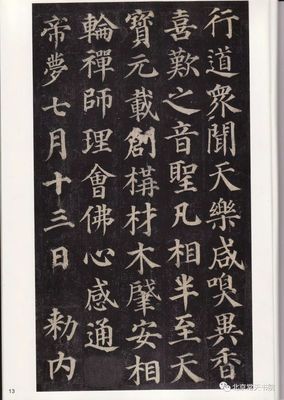 行道眾聞天樂咸嗅異香
喜歎之音聖凡相半至天
寶元載創構材木肇安相
輪禪師理會佛心感通
帝夢七月十三日 勅内
13